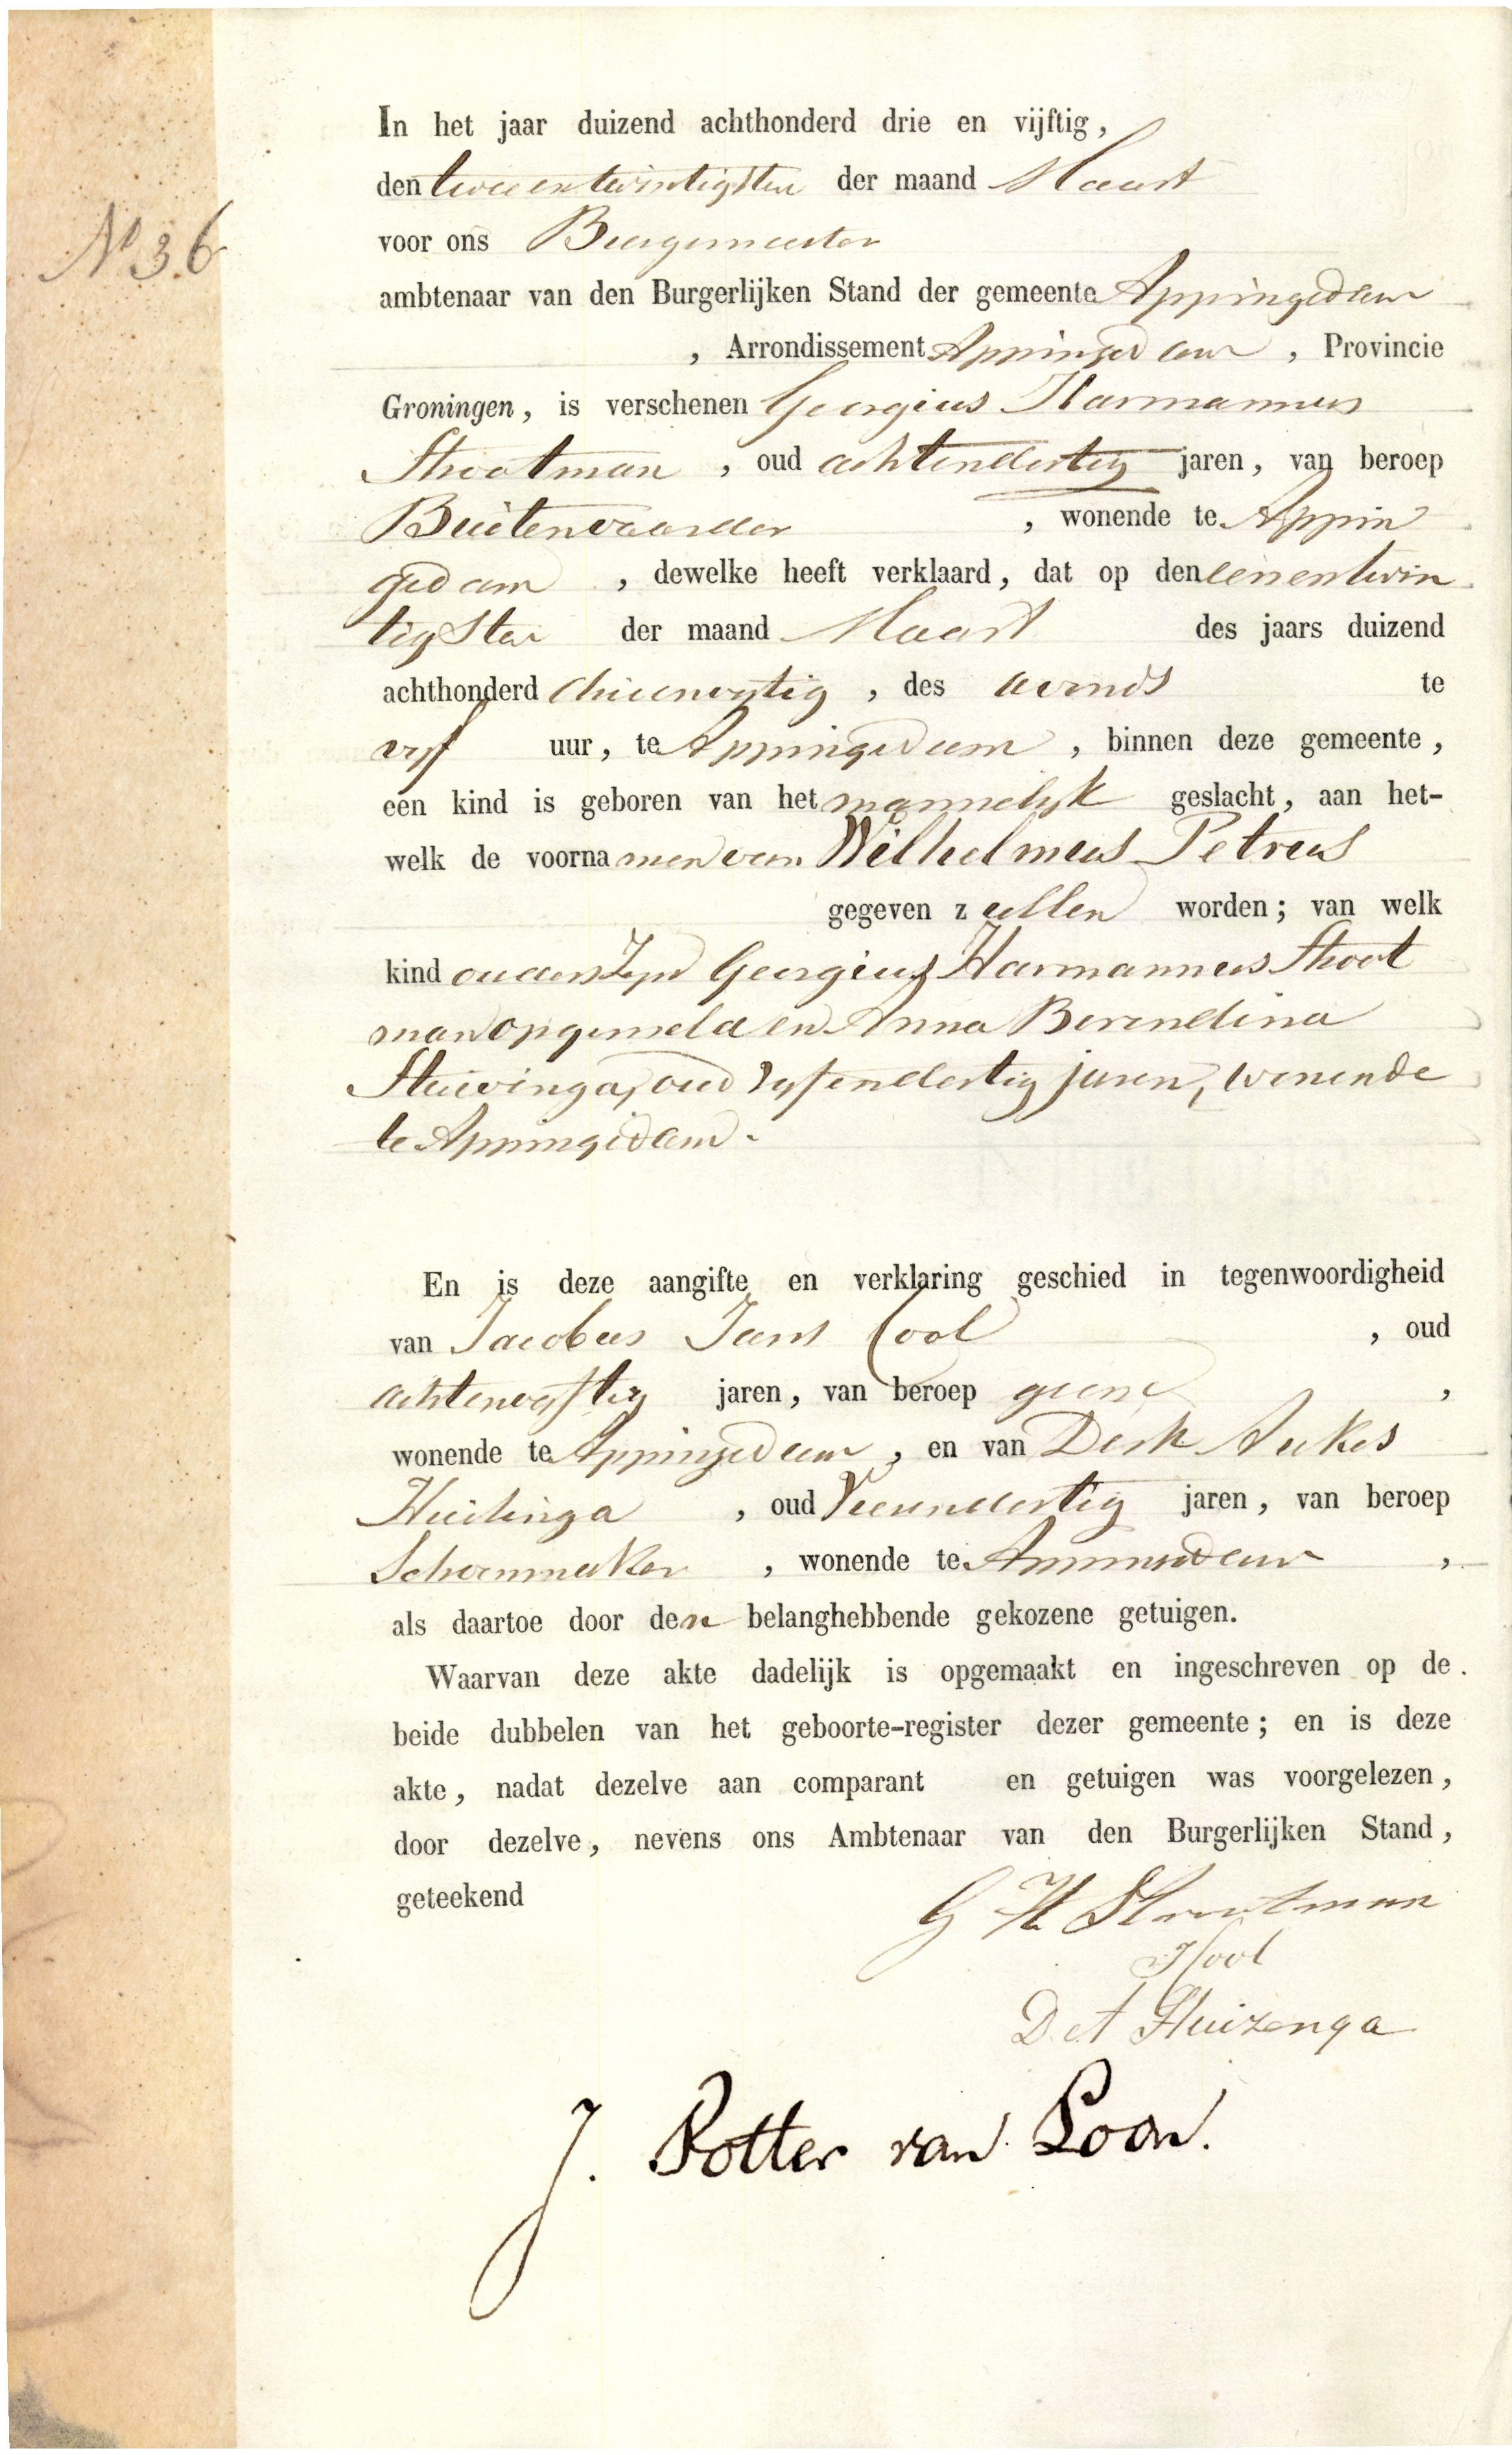 N° 36
In het jaar duizend achthonderd drie en vijftig,
den tweeentwintigsten der maand Maart
voor ons Burgemeester
ambtenaar van den Burgerlijken Stand der gemeente Appingedam
, Arrondissement Appingedam , Provincie
Groningen, is verschenen Georgius Harmannus
Strootman , oud achtendertig jaren, van beroep
Buitenvaarder , wonende te Appin
gedam , dewelke heeft verklaard, dat op den eenentwin
tigsten der maand Maart des jaars duizend
achthonderd drieenvyftig , des avonds te
vyf uur, te Appingedam , binnen deze gemeente,
een kind is geboren van het mannelyk geslacht, aan het-
welk de voornamen van Wilhelmus Petrus
gegeven zullen worden; van welk
kind ouders zyn Georgius Harmannus Stroot
man opgemeld en Anna Berendina
Stuivinga, oud vyfendertig jaren, wonende
te Appingedam.
En is deze aangifte en verklaring geschied in tegenwoordigheid
van Jacobus Jans Cool , oud
achtenvyftig jaren, van beroep geene ,
wonende te Appingedam , en van Derk Aukes
Huizinga , oud vierendertig jaren, van beroep
Schoenmaker , wonende te Appingedam ,
als daartoe door den belanghebbende gekozene getuigen.
Waarvan deze akte dadelijk is opgemaakt en ingeschreven op de
beide dubbelen van het geboorte-register dezer gemeente; en is deze
akte, nadat dezelve aan comparant en getuigen was voorgelezen,
door dezelve, nevens ons Ambtenaar van den Burgerlijken Stand,
geteekend
G H Strootman
J J Cool
D. A Huizenga
J. Potter van Loon.